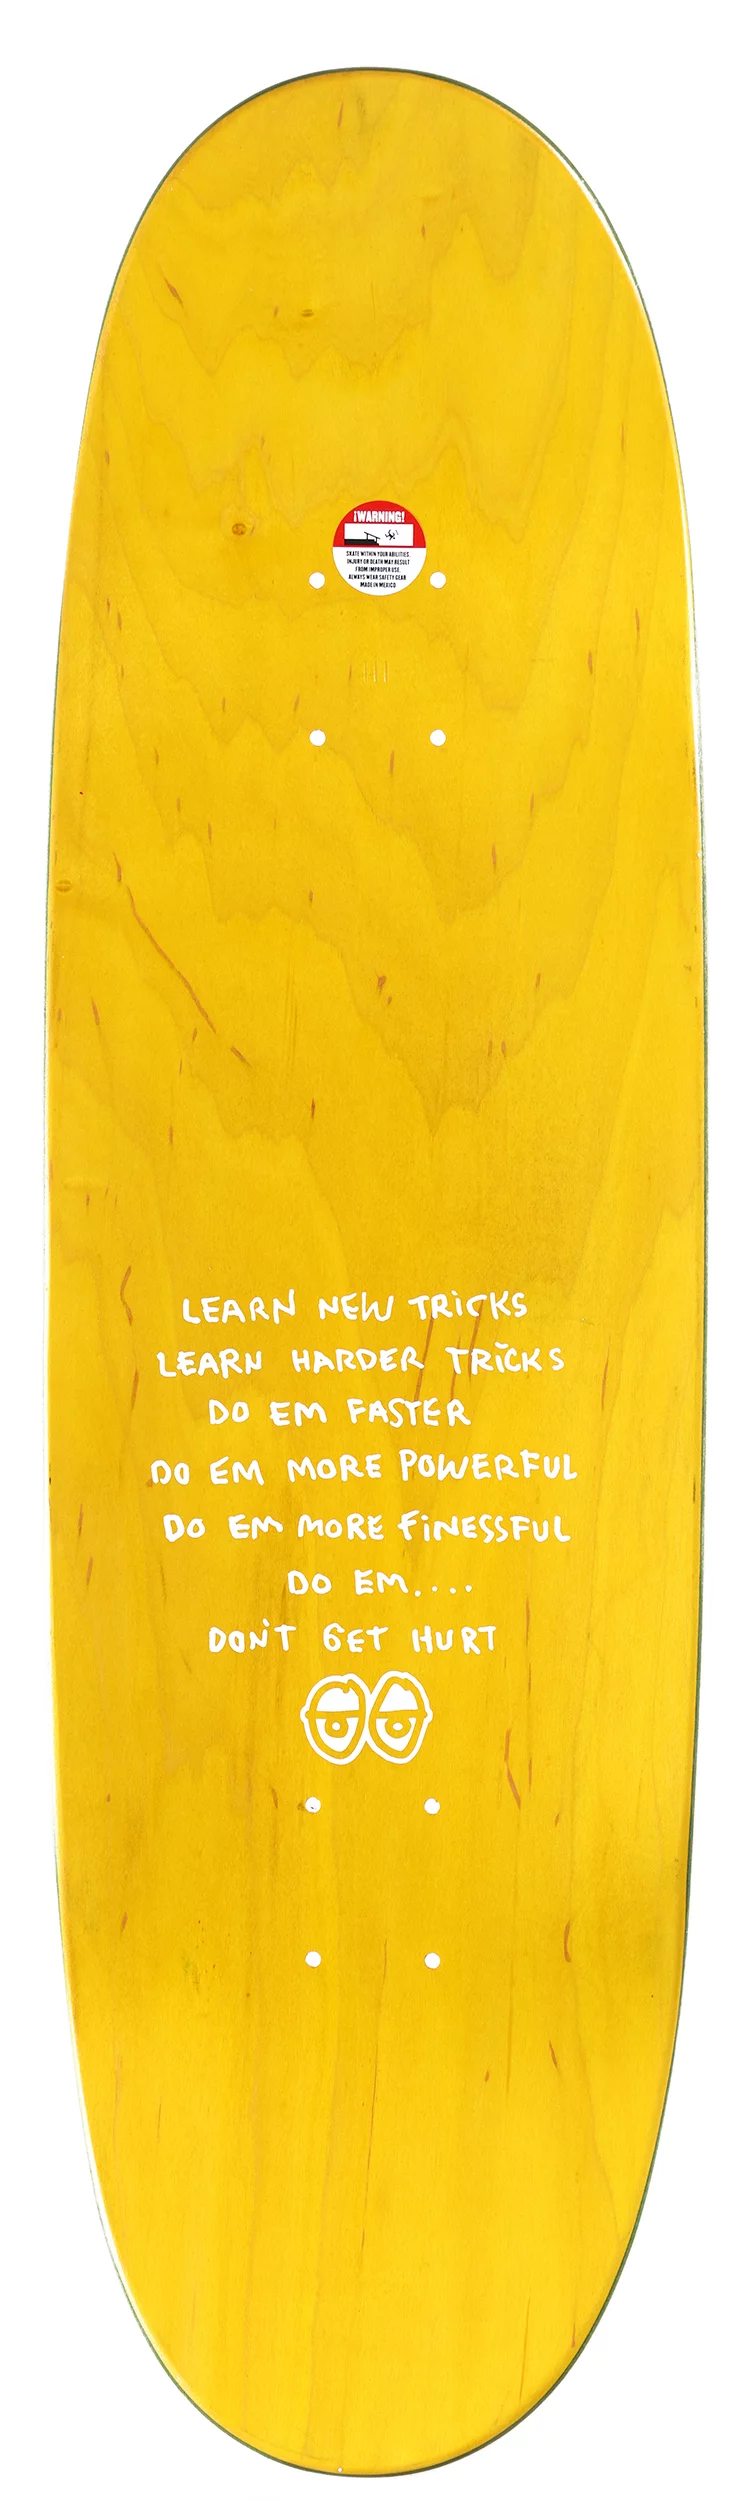 ¡WARNING!
SKATE WITHIN YOUR ABILITIES.
INJURY OR DEATH MAY RESULT
FROM IMPROPER USE.
ALWAYS WEAR SAFETY GEAR
MADE IN MEXICO
LEARN NEW TRiCKS
LEARN HARDER TRiCKS
DO EM FASTER
DO EM MORE POWERFUL
DO EM MORE FiNESSFUL
DO EM....
DON'T GET HURT